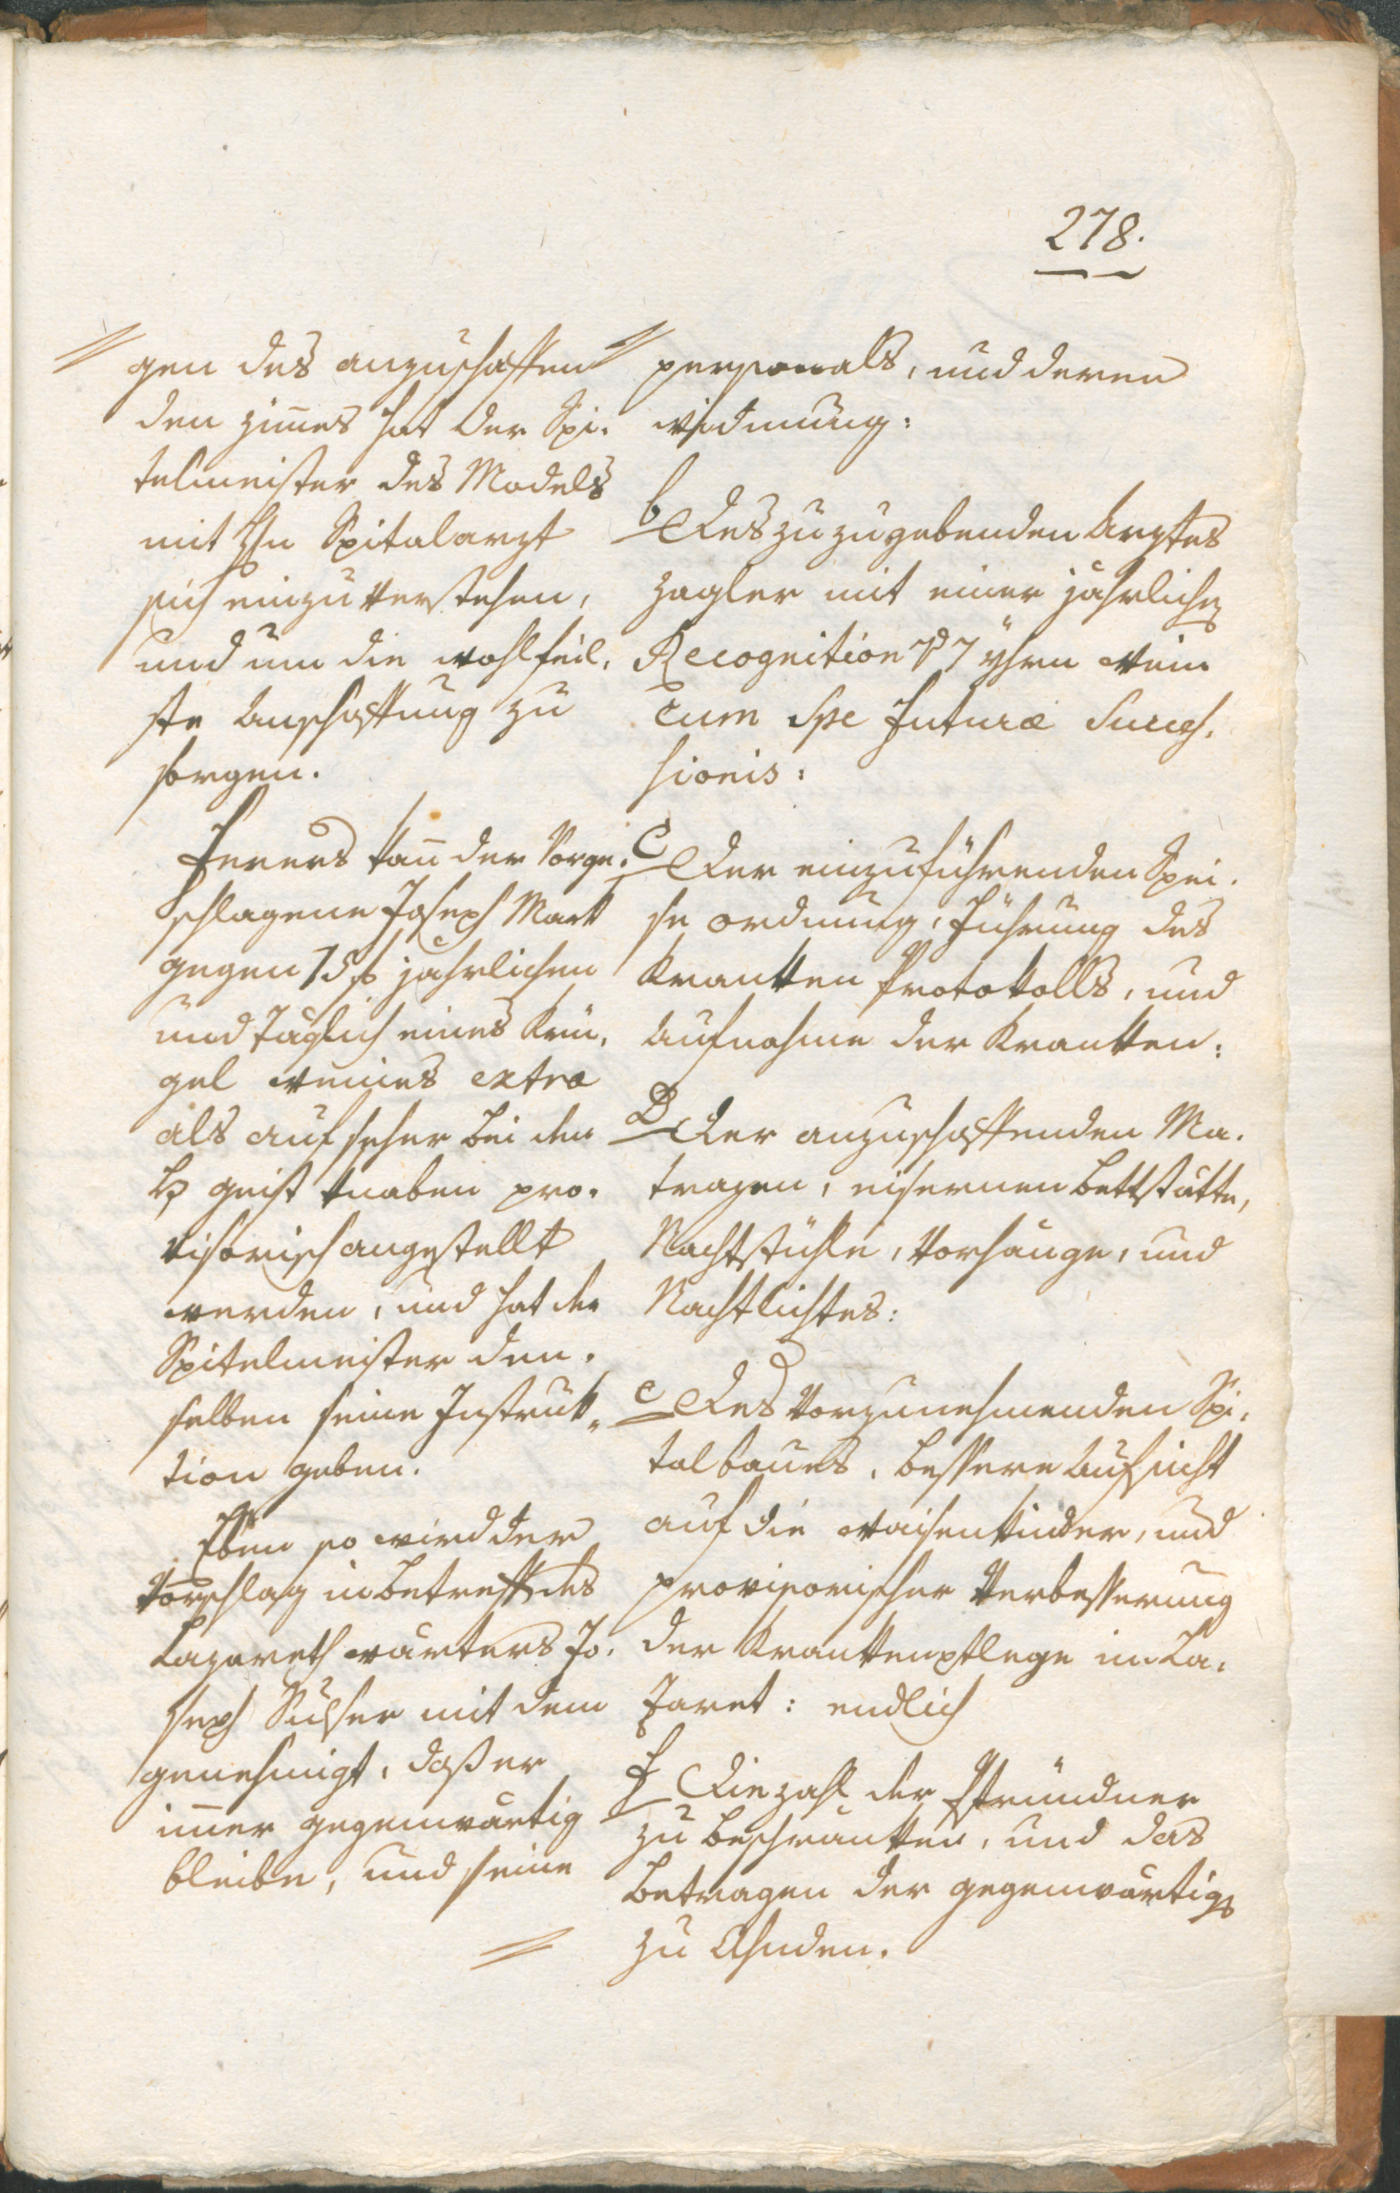 278.
gen des anzuschaffen
den Zim̄es hat der Spi-
telmeister des Models
mit Hn Spitalarzt
sich einzuverstehen,
und um die wohlfeil-
ste Anschaffung zu
sorgen.
Ferers kan̄ der Vorge-
schlagene Joseph Mark
gegen 15 f jährlichen
und täglich eines Krü-
gel weines extra
als aufseher bei den
geist Knaben pro-
visorisch angestellt
werden, und hat der
Spitelmeister dem-
selben seine Instruk-
tion geben.
Eben so wird der
Vorschlag in betreff des
Lazareth wärters Jo-
seph mit dem
genehmigt, daß er
im̄er gegenwärtig
bleibe, und seine
personals, und deren
widmung:
b Des zuzugebenden Arztes
Zagler mit einer jährlichen
Recognition 7 yhrn wein
cum Spe futuræ Succes-
sionis:
C Der einzuführenden Spei-
se ordnung, führung des
Kranken Protokolls, und
Aufnahme der Kranken:
D Der anzuschaffenden Ma-
trazen, eisernen bettstätte,
Nachtstühle, Vorhänge, und
Nachtlichtes:
e Des Vorzunehmenden Spi-
talbaues, bessere Aufsicht
auf die waisenkinder, und
provisorischer Verbesserung
der Krankenpflege im La-
zaret: endlich
f Die zahl der Pfründner
zu beschränken, und das
betragen der gegenwärtigen
zu Ahnden.